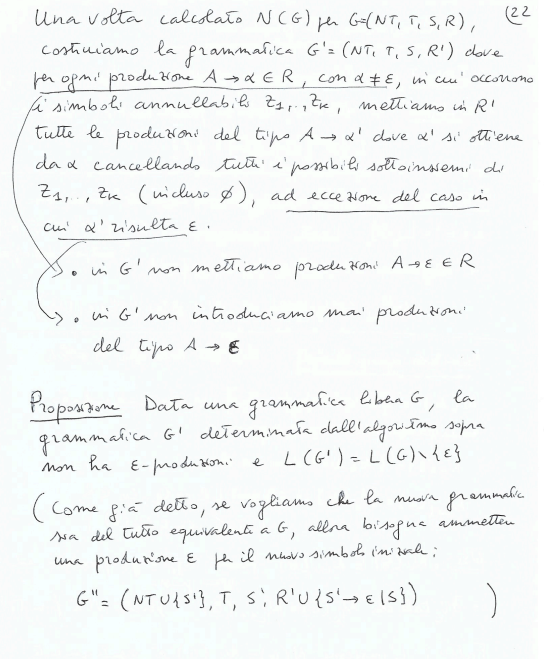 (22
Una volta calcolato N(G) per G=(NT, T, S, R),
costruiamo la grammatica G' = (NT, T, S, R') dove
per ogni produzione A → α ∈ R, con α ≠ ε, in cui occorrono
i simboli annullabili Z1,.., Zk, mettiamo in R'
tutte le produzioni del tipo A → α' dove α' si ottiene
da α cancellando tutti i possibili sottoinsiemi di
Z1,.., Zk (incluso ∅), ad eccezione del caso in
cui α' risulta ε.
• in G' non mettiamo produzioni A → ε ∈ R
• in G' non introduciamo mai produzioni
del tipo A → ε
Proposizione Data una grammatica libera G, la
grammatica G' determinata dall'algoritmo sopra
non ha ε-produzioni e L(G') = L(G) \ {ε}
(Come già detto, se vogliamo che la nuova grammatic
sia del tutto equivalente a G, allora bisogna ammetter
una produzione ε per il nuovo simbolo iniziale:
G'' = (NT ∪ {S'}, T, S', R' ∪ {S' → ε | S}) )